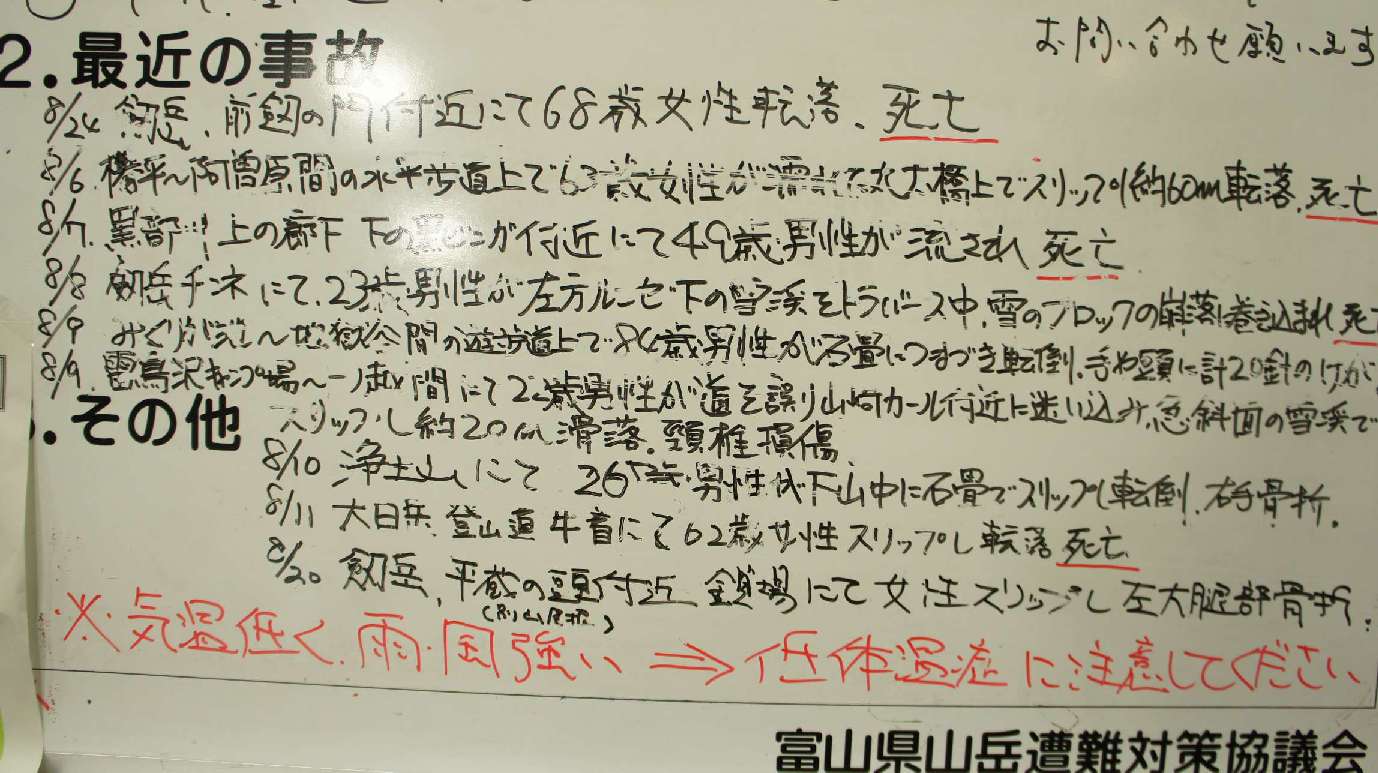 お問い合わせ願います
2.最近の事故
8/24 剱岳、前剱の門付近にて68歳女性転落、死亡
8/6 欅平~阿曽原間の水平歩道上で63歳女性が濡れた丸太橋上でスリップし約60m転落、死亡
8/7. 黒部川上の廊下 下の黒ビンガ付近にて49歳男性が流され死亡
8/8 剱岳チンネにて、23歳男性が左方ルンゼ下の雪渓をトラバース中、雪のブロックの崩落に巻込まれ死亡
8/9 みくりが池~地獄谷間の遊歩道上で84歳男性が石畳につまづき転倒、手や頭に計20針のけが
8/9. 雷鳥沢キャンプ場~一ノ越間にて 歳男性が道を誤り山崎カール付近に迷い込み、急斜面の雪渓で
スリップし約20m滑落。頸椎損傷
.その他
8/10 浄土山にて 26歳男性が下山中に石畳でスリップし転倒、右手骨折.
8/11 大日岳 登山道 牛首にて62歳女性スリップし転落 死亡
8/20 剱岳、平蔵の頭付近 鎖場にて女性スリップし左大腿部骨折.
(別山尾根)
※気温低く、雨・風強い⇒低体温症に注意してください
富山県山岳遭難対策協議会